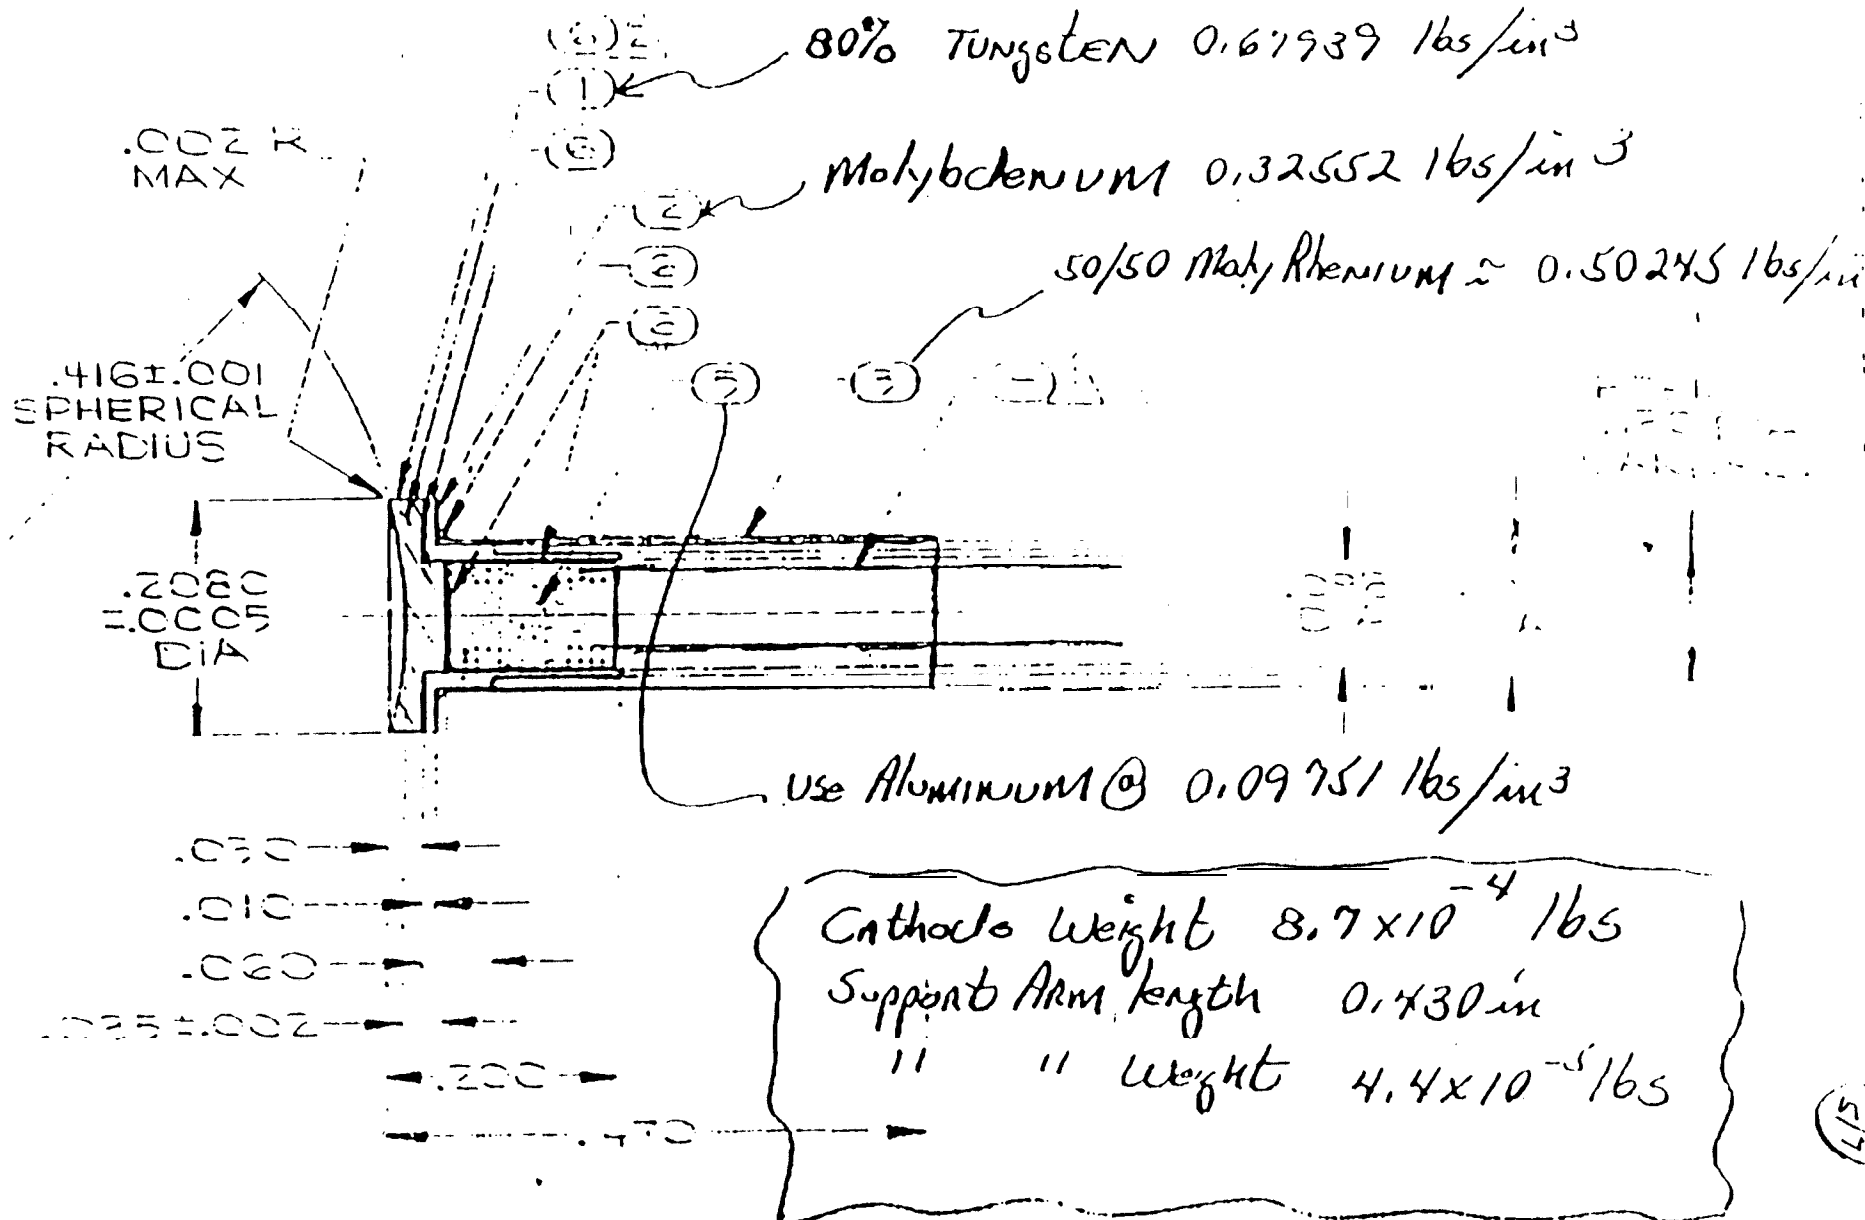 80% Tungsten 0.67939 lbs/in³
1
.002 R
MAX
Molybdenum 0.32552 lbs/in³
2
50/50 Moly Rhenium ≈ 0.50245 lbs/in
.416±.001
SPHERICAL
RADIUS
5
3
.2080
±.0005
DIA
use Aluminum @ 0.09751 lbs/in³
.030
.010
.060
.035±.002
.200
.470
Cathode Weight 8.7x10⁻⁴ lbs
Support Arm length 0.430 in
" " Weight 4.4x10⁻⁵ lbs